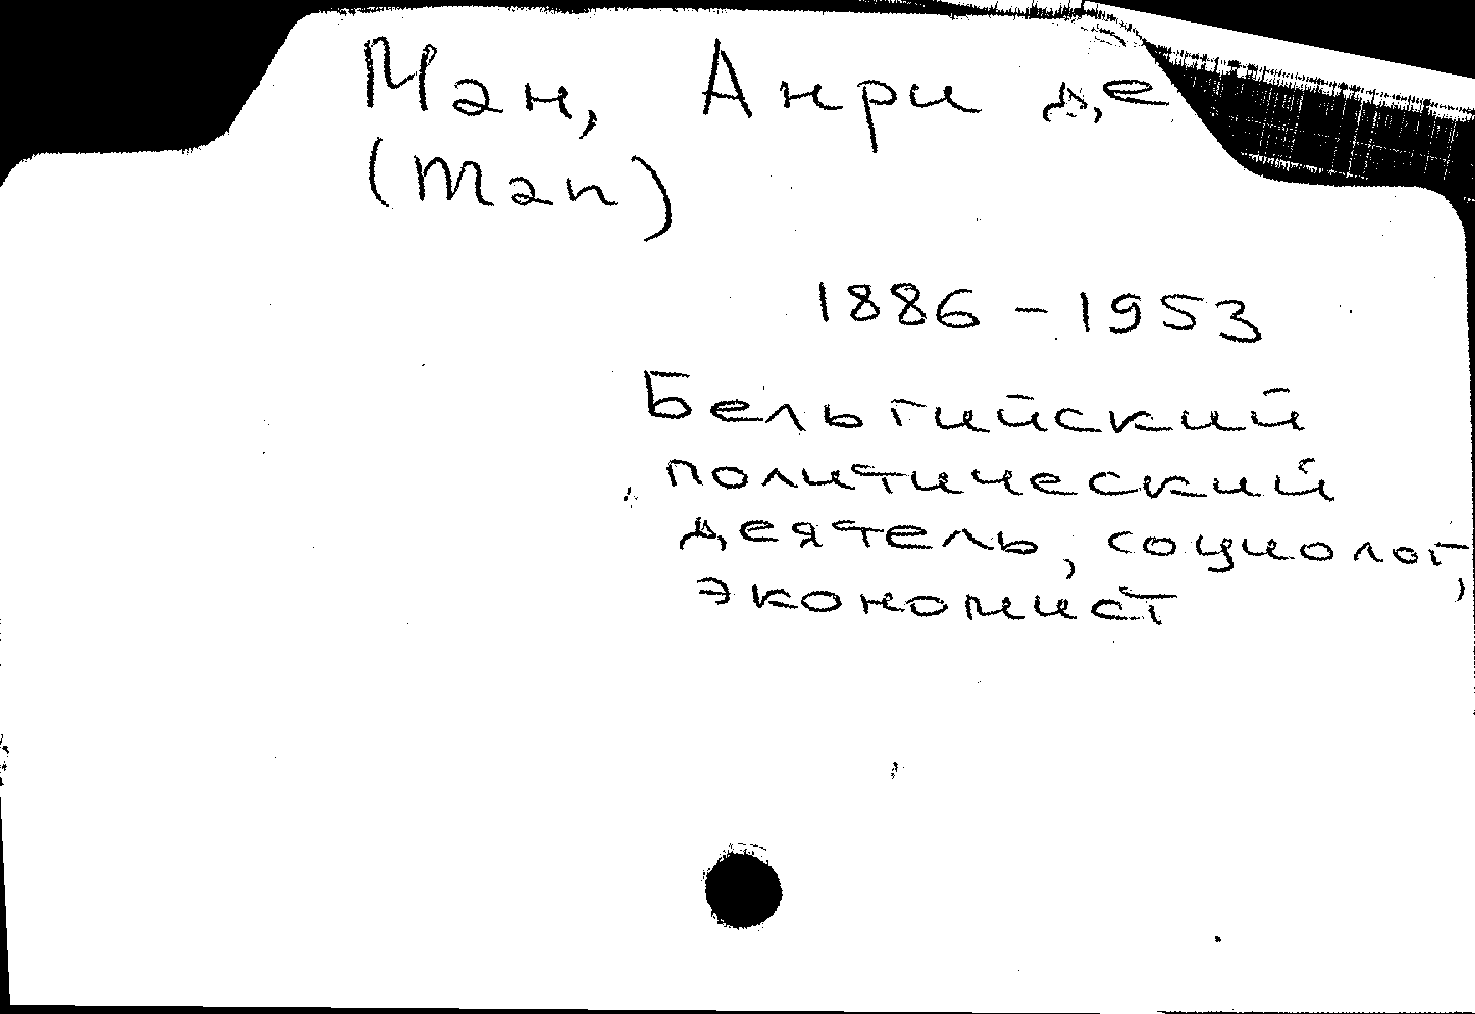 Ман, Анри де
(Man)
1886 - 1953
Бельгийский
политический
деятель, социолог,
экономист